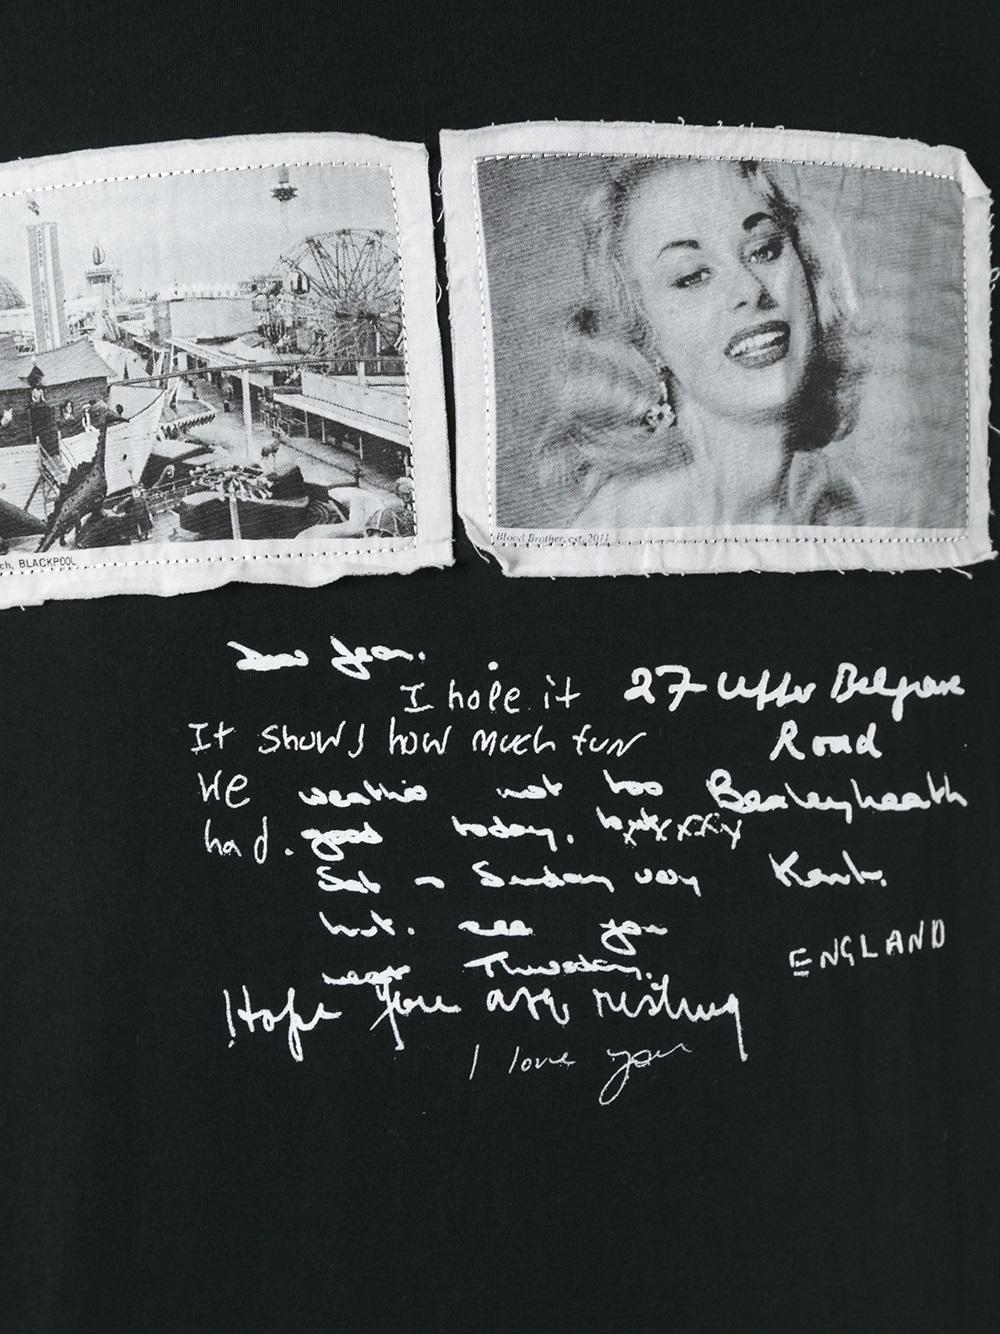 ch, BLACKPOOL
Blood Brother, est. 2011
Dear Jean.
I hope it
27 Upper Belgrave
It shows how much fun
Road
We weather not too
Bexleyheath
had. good today, xxxxy
Sat - Sunday very
Kent.
hot. see you
ENGLAND
near Thursday.
Hope you are resting
I love you